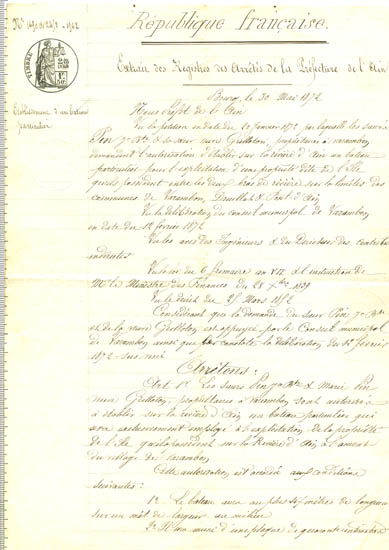 République française.
Extrait des Registres des Arrêtés de la Préfecture de l'Ain
Bourg, le 30 Mai 1872
Etablissement d'un bateau
particulier
Nous Préfet de l'Ain
Vu la pétition en date du 10 janvier 1872 par laquelle les sieurs
Pin et sa sœur veuve Grilloton, propriétaires à Varambon,
demandent l'autorisation d'établir sur la rivière d'Ain un bateau
particulier pour l'exploitation d'une propriété dite de l'Ile
qu'ils possèdent entre les deux bras de rivière sur les limites des
communes de Varambon, Druillat & Pont d'Ain,
Vu la délibération du conseil municipal de Varambon
en date du 12 février 1872
Vu les avis des Ingénieurs & du Directeur des contrib
indirectes
Vu la loi du 6 frimaire an VII & l'instruction de
Mr le Ministre des Finances du 1839
Vu le décret du 25 Mars 1852
Considérant que la demande du sieur Pin
et de la veuve Grilloton est appuyée par le Conseil municipal
de Varambon ainsi que constate la délibération du 12 février
1872 sus visée
Arrêtons :
Art 1er Les sieurs Pin & Marie Pin
veuve Grilloton, propriétaires à Varambon sont autorisés
à établir sur la rivière d'Ain un bateau particulier qui
sera exclusivement employé à l'exploitation de la propriété
de l'Ile qu'ils possèdent sur la Rivière d'Ain, à l'amont
du village de Varambon
Cette autorisation est accordée aux conditions
suivantes :
1° Le bateau aura au plus six mètres de longueur
sur un mèt de largeur au milieu
2° Il sera muni d'une plaque de quarante centimètres